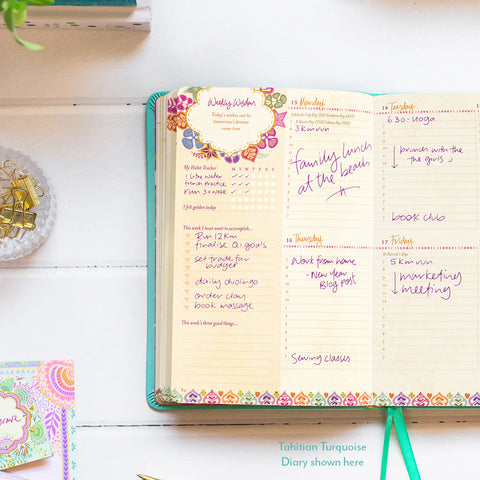 Weekly Wisdom
Today's wishes can be
tomorrow's dreams
come true
My Habit Tracker
M T W T F S S
1 litre water
French Practice
Run 3x week
I felt golden today
This week I most want to accomplish...
Run 12km
finalise Q1 goals
set trade fair
budget
daily duolingo
order clay
book massage
This week's three good things...
13 Monday
Adelaide Cup Day (SA) Canberra Day (ACT)
8 Hour Day (TAS) Labour Day (VIC)
3km run
family lunch
at the beach
14 Tuesday
6:30 - yoga
brunch with the
the girls
book club
16 Thursday
Work from home
- New year
Blog post
Sewing classes
17 Friday
St Patrick's Day
5km run
marketing
meeting
Tahitian Turquoise
Diary shown here